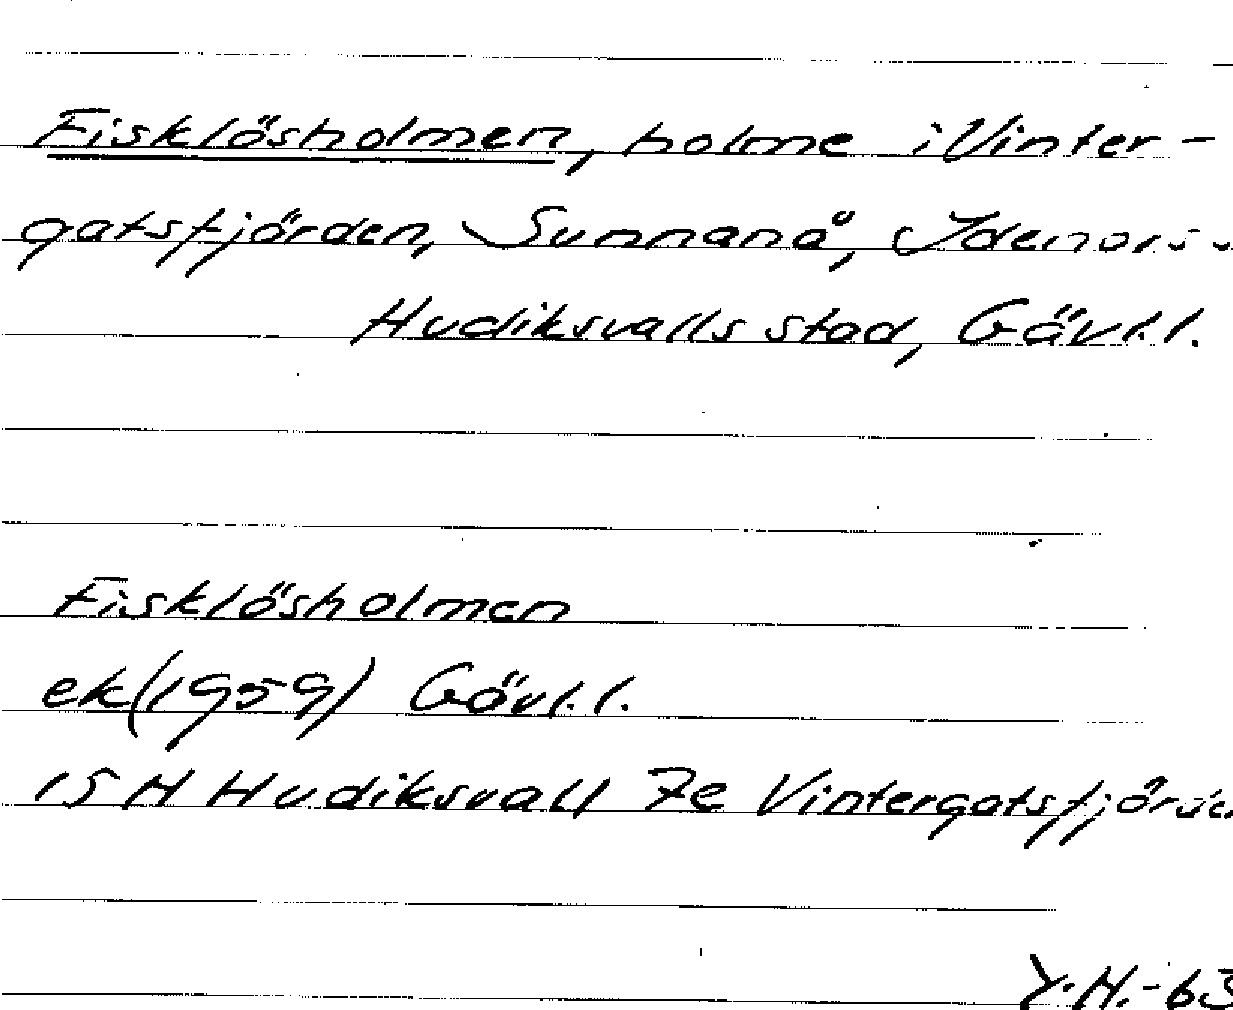 Fisklösholmen, holme i Vinter-
gatsfjärden, Sunnanå, Idenors
Hudiksvalls stad, Gävl.l.
Fisklösholmen
ek(1959) Gävl.l.
15H Hudiksvall 7e Vintergatsfjärde
Y.H.-63